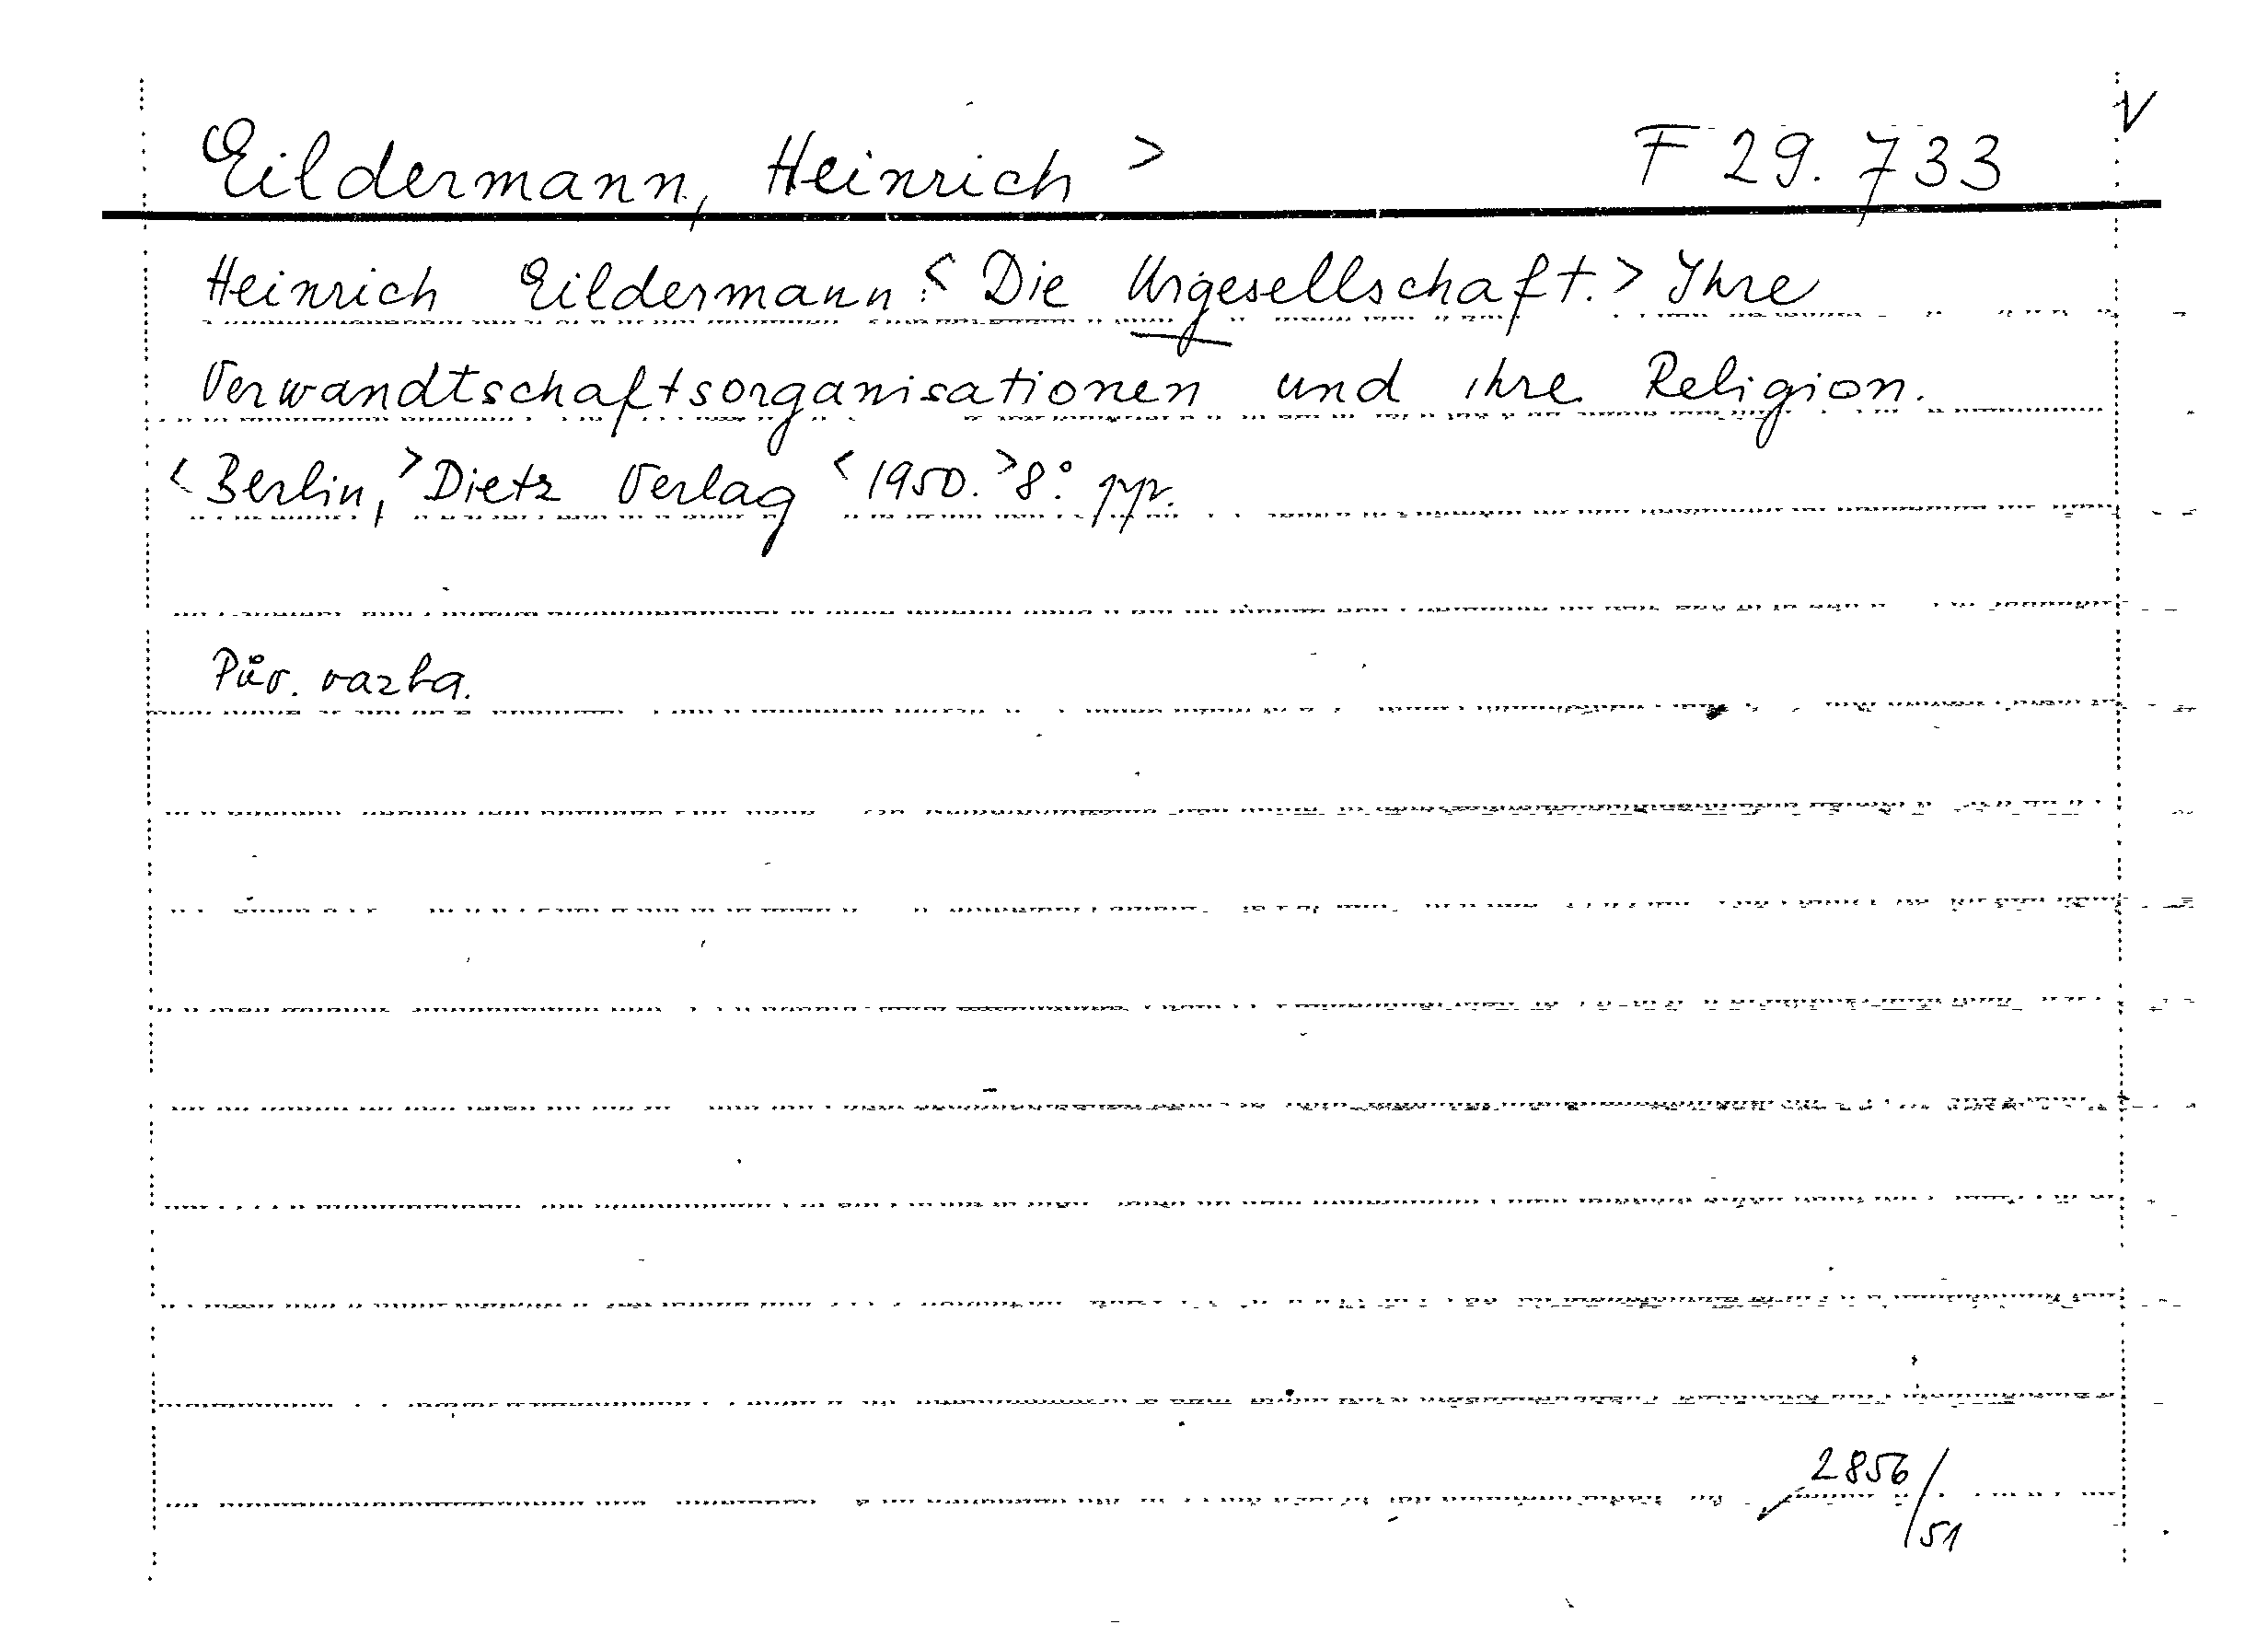 Eildermann, Heinrich > F 29.733 V
Heinrich Eildermann: < Die Urgesellschaft. > Ihre
Verwandtschaftsorganisationen und ihre Religion.
< Berlin, > Dietz Verlag < 1950. > 8°. ppr.
Pův. vazba.
2856/51